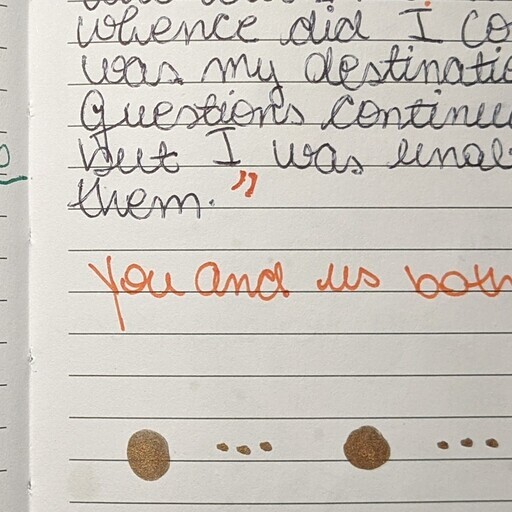 whence did I co
was my destinatio
Questions continu
but I was unab
them."
you and us both